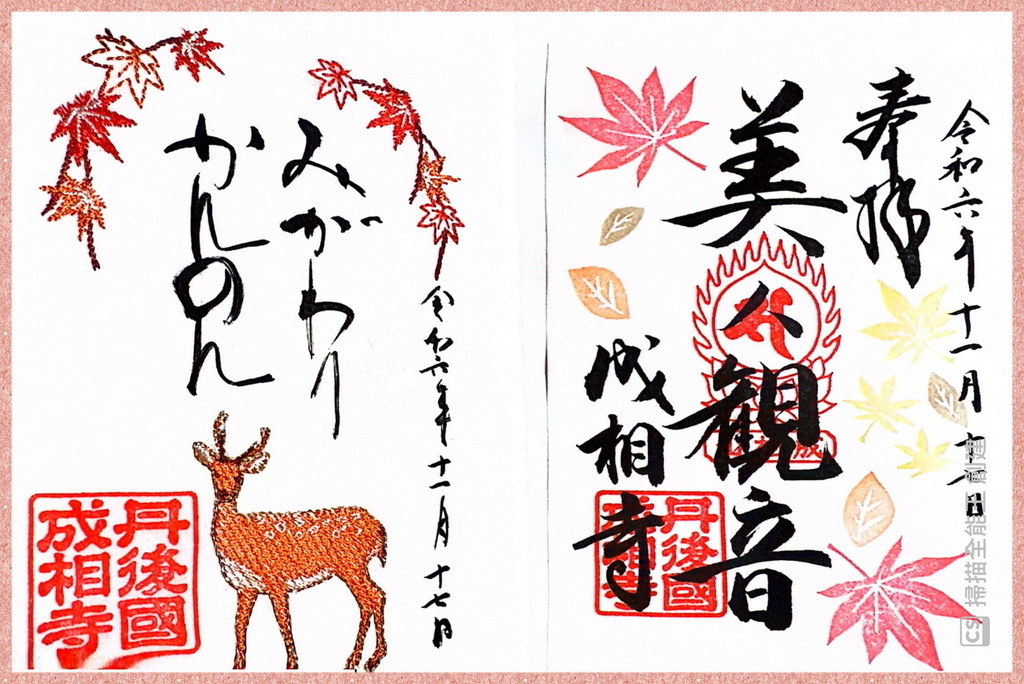 奉拝
令和六年十一月十七日
美人観音
成相寺
丹後國
成相寺
みがわり
かんのん
令和六年十一月十七日
丹後國
成相寺
CS 掃描全能王 創建